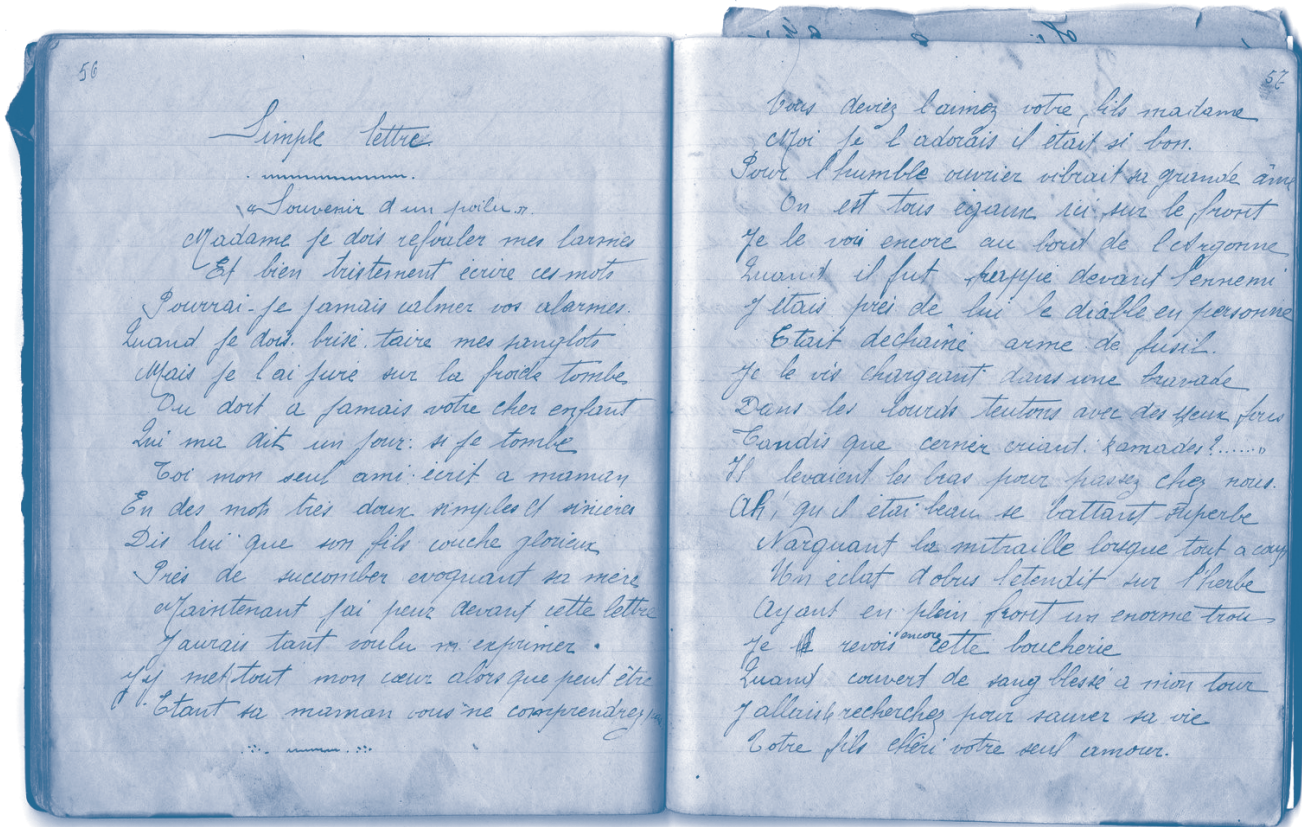 56
Simple lettre
"Souvenir d'un poilu".
Madame je dois refouler mes larmes
Et bien tristement écrire ces mots
Pourrai-je jamais calmer vos alarmes.
Quand je dois. brisé. taire mes sanglots
Mais je l'ai juré sur la froide tombe
Ou dort a jamais votre cher enfant
Qui ma dit un jour: si je tombe
Toi mon seul ami écrit a maman
En des mots très doux simples et sincères
Dis lui que son fils couche glorieux
Près de succomber evoquant sa mère
Maintenant j'ai peur devant cette lettre
J'aurais tant voulu m'exprimer.
J'y met tout mon cœur alors que peut être
Etant sa maman vous ne comprendrez
57
Vous deviez l'aimez votre fils madame
Moi je l'adorais il était si bon.
Pour l'humble ouvrier vibrait sa grande âme
On est tous égaux ici sur le front
Je le vois encore au bord de l'Argonne
Quand il fut frappé devant l'ennemi
J'étais près de lui le diable en personne
Etait déchaîné armé de fusil.
Je le vis chargeant dans une bravade
Dans les lourds teutons avec des yeux fous
Tandis que cerner criant: Kamades?......"
Il levaient les bras pour passez chez nous.
Ah, qu'il étai beau se battant superbe
Narguant la mitraille lorsque tout a coup
Un éclat d'obus l'etendit sur l'herbe
Ayant en plein front un enorme trou
Je revois encore cette boucherie
Quand couvert de sang blessé a mon tour
J'allais le recherchez pour sauver sa vie
Votre fils chéri votre seul amour.